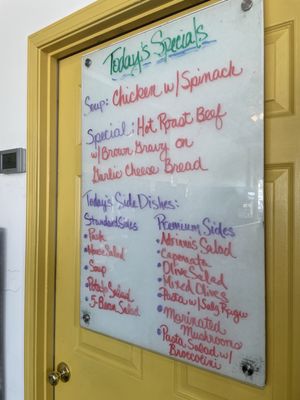 Today's Specials
Soup: Chicken w/ Spinach
Special: Hot Roast Beef
w/ Brown Gravy on
Garlic Cheese Bread
Today's Side Dishes:
Standard Sides
House Salad
Soup
Potato Salad
5-Bean Salad
Premium Sides
Salad
Caponata
Olive Salad
Mixed Olives
Pasta w/
Marinated
Mushrooms
Pasta Salad w/
Broccolini